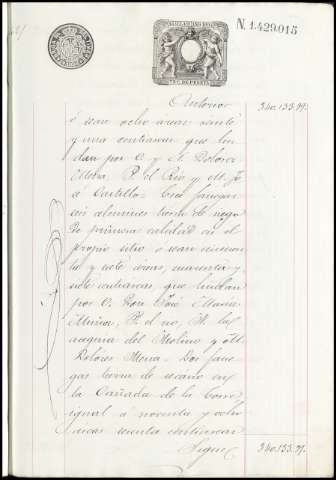 N. 1.429.015
Anterior 340.133.99.
ó sean ocho áreas veinte
y una centiareas que lin
dan por O. y N. Dolores
Mera, P. el Rio y M. Jo
sé Castillo. Tres fanegas
seis celemines tierra de rega
dio primera calidad en el
propio sitio ó sean cincuen
ta y siete áreas, cuarenta y
siete centiareas que lindan
por O. Don José Maria
P. el rio, N. la
maquina del Molino y M.
Dolores Mera. Dos fane
gas tierra de secano en
la Cañada de la
igual á noventa y ocho
areas centiareas
Sigue 340.133.99.